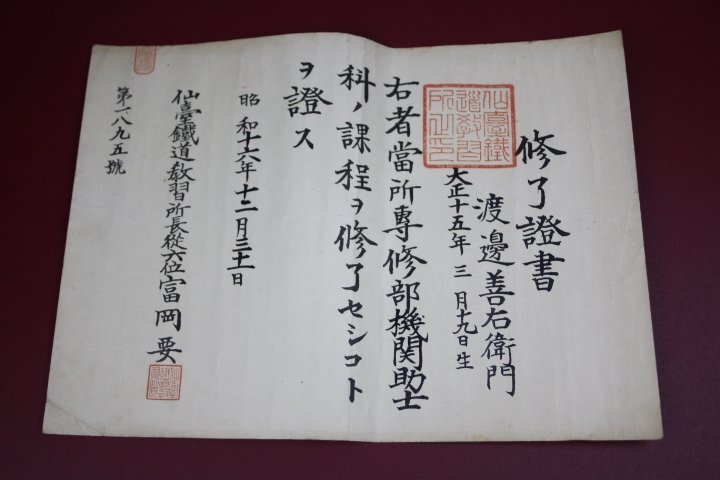 修了證書
渡邊善右衛門
大正十五年三月十九日生
仙臺鐵
道教習
所之印
右者當所專修部機関助士
科ノ課程ヲ修了セシコト
ヲ證ス
昭和十六年十二月三十一日
仙臺鐵道教習所長從六位富岡要
第一八九五號